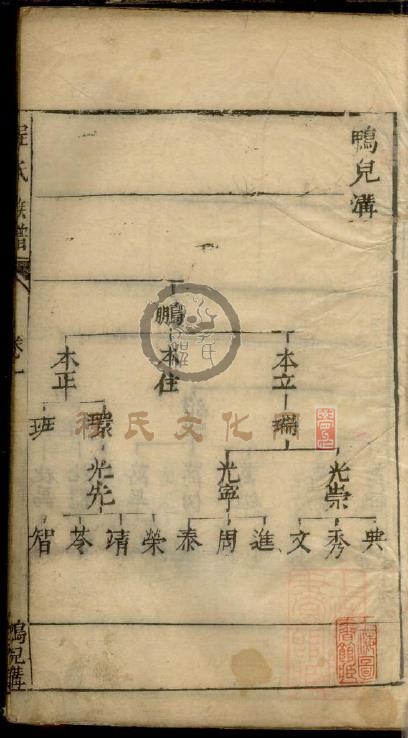 鴨兒溝
鵬
本立 本住 本正
瑞 環 班
光崇 光寧 光先
典 秀 文 進 周 泰 榮 靖 苓 智
氏族譜
卷一
鴨兒溝
程氏文化